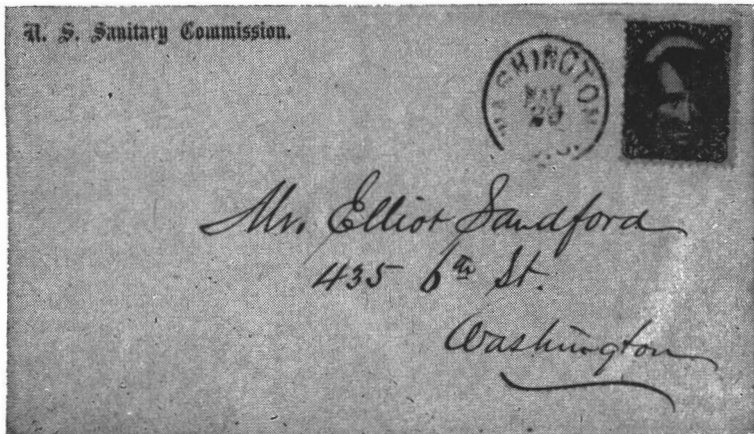 U. S. Sanitary Commission.
WASHINGTON
MAY
29
Mr. Elliot Sandford
435 6th St.
Washington